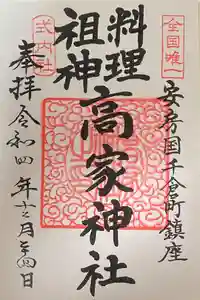 全国唯一
安房国千倉町鎮座
料理
祖神
高家神社
式内社
奉拝
令和四年十二月
日